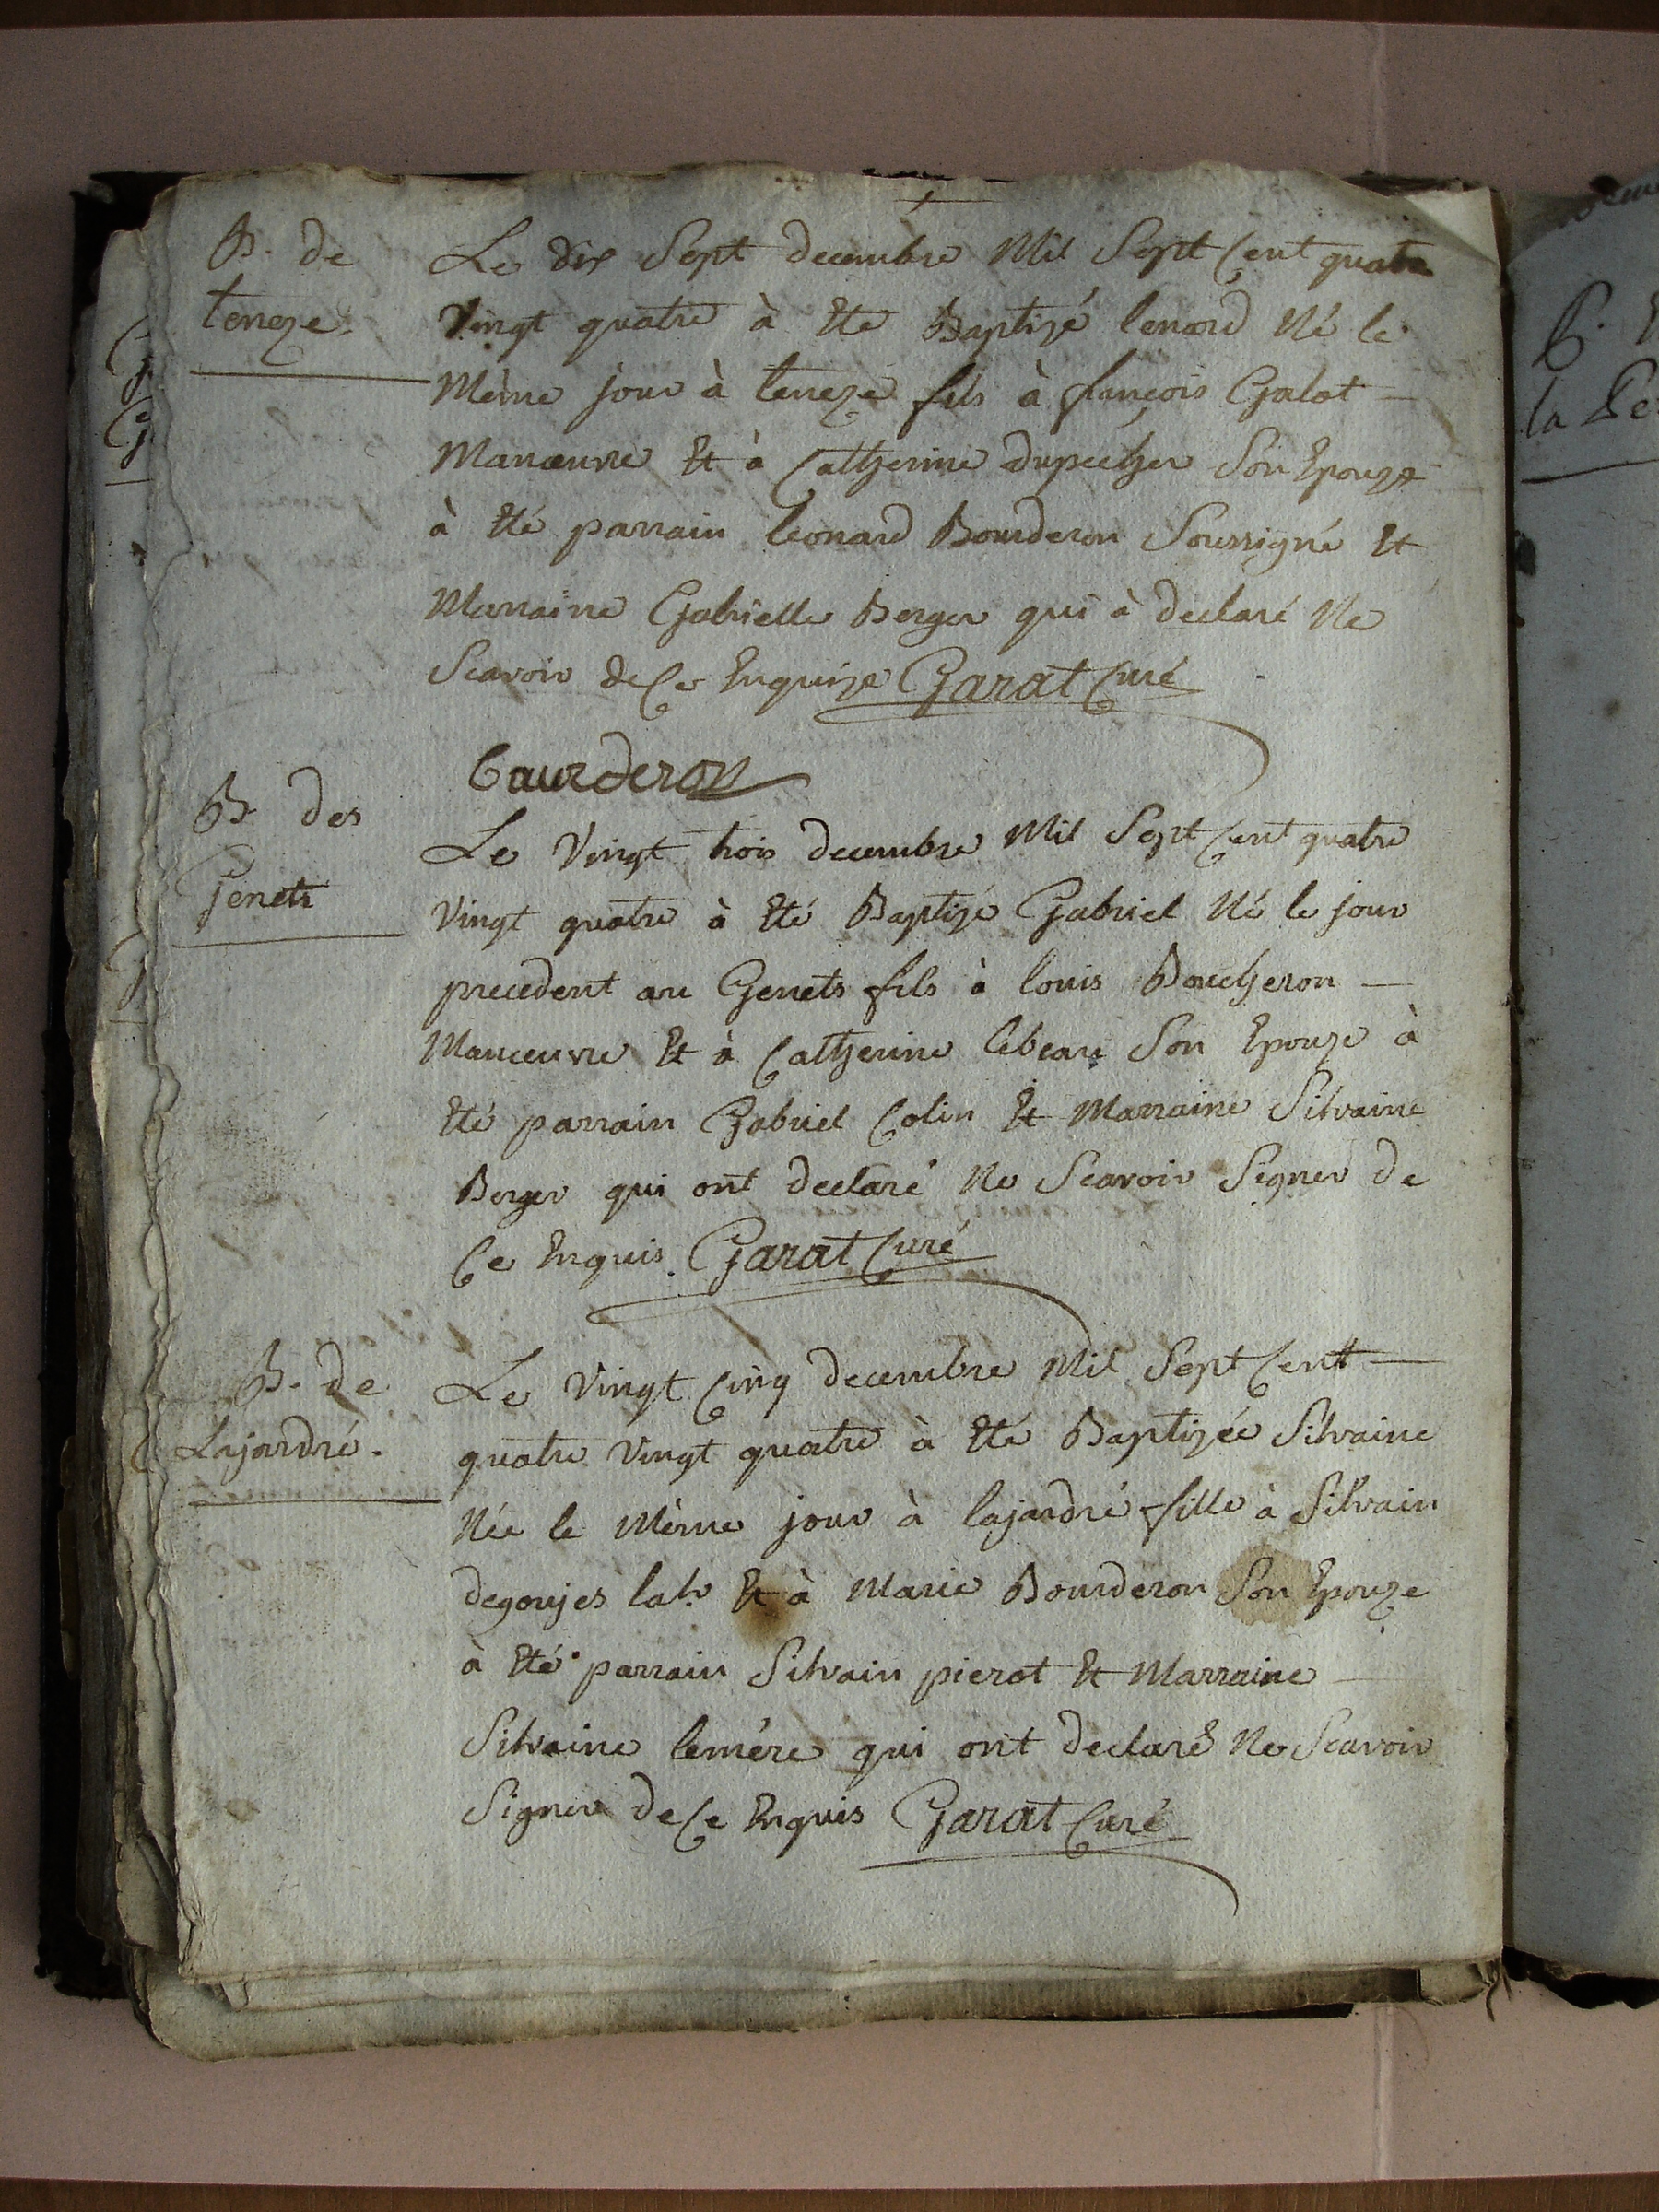 B. de
teneze.
Le dix Sept decembre Mil Sept Cent quatre
Vingt quatre à Eté Baptizé lenord Né le
Même jour à teneze fils à françois Galat
Manœuvre Et à Catherine dupecher Son Epouze
à Eté parrain leonard Bourderon Soussigné Et
Marraine Gabrielle Berger qui à declaré Ne
Scavoir de Ce Enquize Garat Curé
Bourderon
B. des
Genets
Le Vingt trois decembre Mil Sept Cent quatre
Vingt quatre à Eté Baptizé Gabriel Né le jour
precedent au Genets fils à louis Boucheron
Manœuvre Et à Catherine lebeau Son Epouze à
Eté parrain Gabriel Colin Et Marraine Silvaine
Berger qui ont declaré Ne Scavoir Signer de
Ce Enquis. Garat Curé
B. de
Lajardré.
Le Vingt Cinq decembre Mil Sept Cent
quatre Vingt quatre à Eté Baptizée Silvaine
Née le Même jour à lajardré fille à Silvain
degoujes labr Et à Marie Bourderon Son Epouze
à Eté parrain Silvain pierot Et Marraine
Silvaine lemére qui ont declaré Ne Scavoir
Signer de Ce Enquis Garat Curé
B.
la